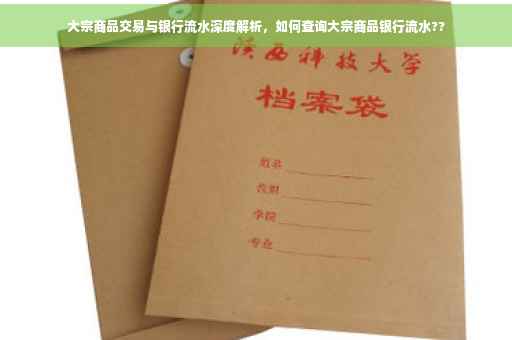 大宗商品交易与银行流水深度解析，如何查询大宗商品银行流水??
陕西科技大学
档案袋
姓名
性别
学院
专业